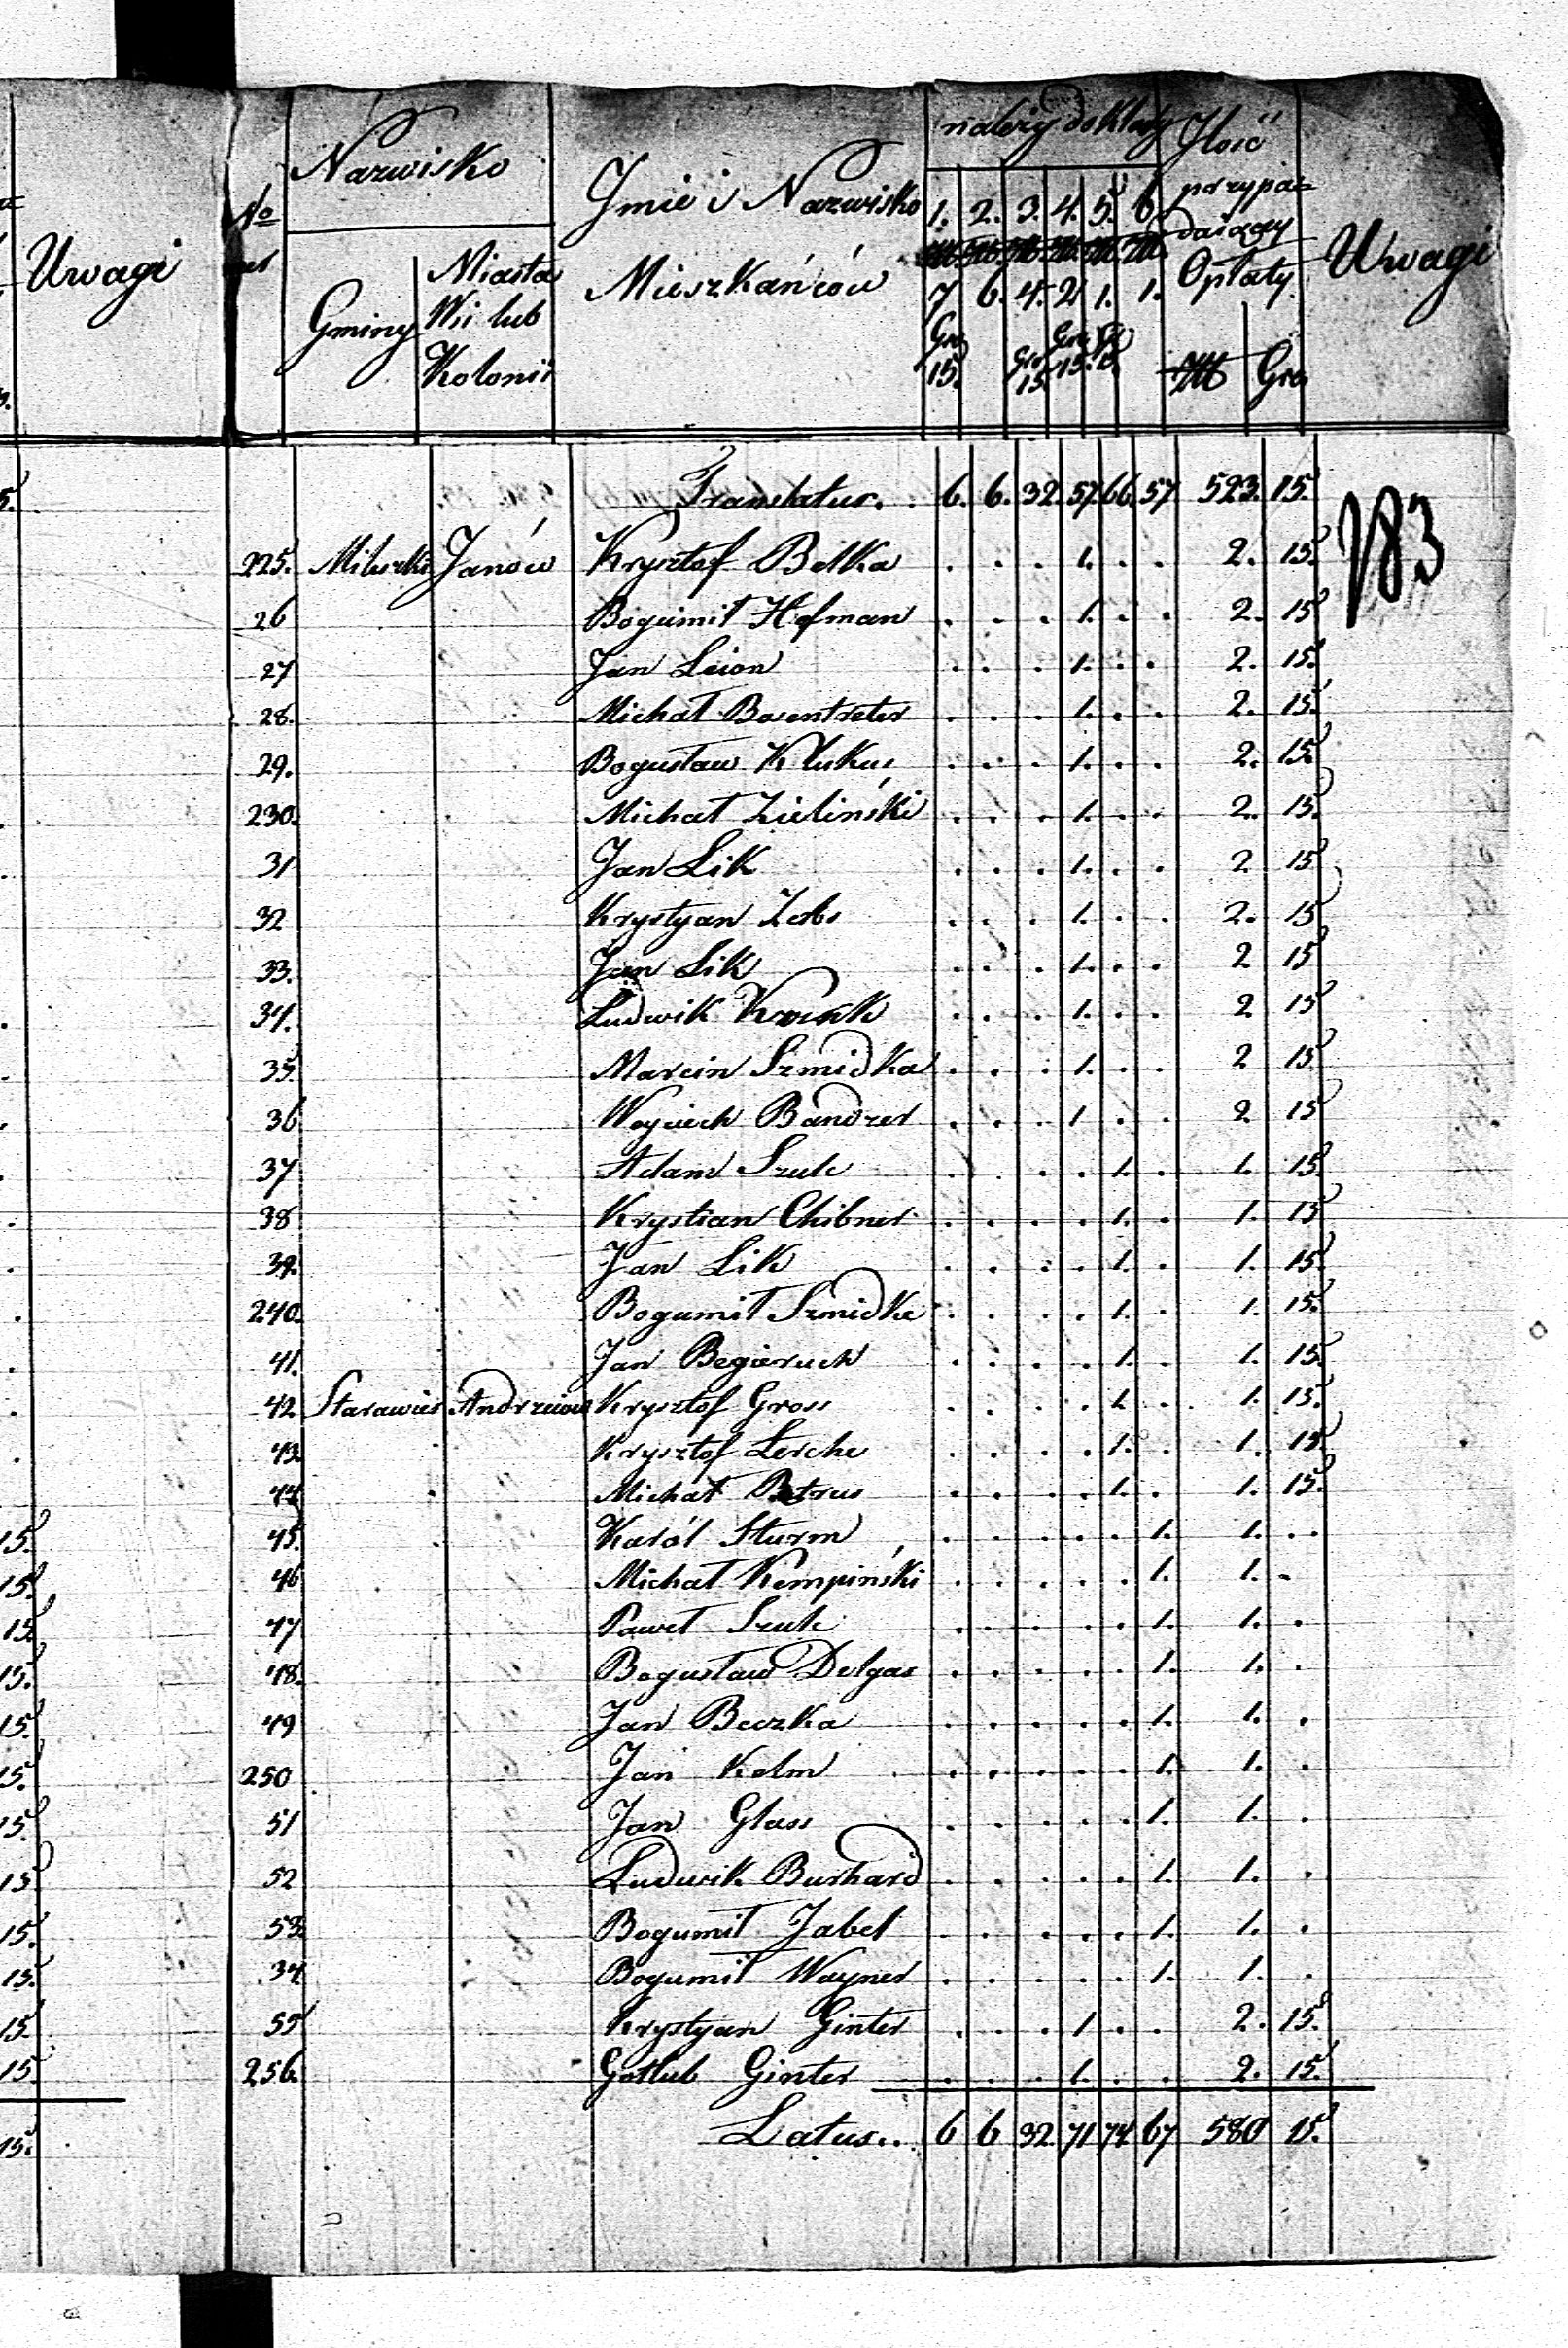 Uwagi
No
Nazwisko
Gminy
Miasta Wsi lub Kolonii
Jmie i Nazwisko Mieszkańców
należy do Klasy
1. 2. 3. 4. 5. 6.
7 6. 4. 2 1. 1.
Gro 15. Gro 15. Gro 15. Gr 15.
Jlość przypadaiącey Opłaty
Gro
Uwagi
183
Translatus. . 6. 6. 32. 57. 66. 57 523. 15.
225. Mileszki Janów Krysztof Belka . . . 1. . . 2. 15.
26 Bogumił Hofman . . . 1. . . 2. 15
27 Jan Leion . . . 1. . . 2. 15.
28. Michał Bosentreter . . . 1. . . 2. 15.
29. Bogusław Klukus . . . 1. . . 2. 15.
230. Michał Zieliński . . . 1. . . 2. 15.
31 Jan Lik . . . 1. . . 2. 15
32 Krystyan . . . 1. . . 2. 15
33. Jan Lik . . . 1. . . 2 15
34. Ludwik . . . 1. . . 2 15
35. Marcin Szmidka . . . 1. . . 2 15
36 Woyciech Bandzer . . . 1 . . 2 15
37 Adam Szulc . . . . 1. . 1. 15.
38 Krystian Chibner . . . . 1. . 1. 15
39. Jan Lik . . . . 1. . 1. 15.
240. Bogumił Szmidke . . . . 1. . 1. 15.
41. Jan . . . . 1. . 1. 15.
42 Starawieś Andrzeiow Krysztof Gross . . . . 1. . 1. 15.
43. Krysztof Lerche . . . . 1. . 1. 15.
44 Michał Petrus . . . . 1. . 1. 15.
45. Karól Sturm . . . . . 1. 1. . .
46 Michał Kempiński . . . . . 1. 1. -
47 Paweł Szulc . . . . . 1. 1. .
48. Bogusław Delgas . . . . . 1. 1. .
49 Jan Beczka . . . . . 1. 1. .
250 Jan Kelm . . . . . 1. 1. .
51 Jan Glass . . . . . 1. 1. .
52 Ludwik Burhard . . . . . 1. 1. .
53. Bogumił Jabel . . . . . 1. 1. .
34 Bogumił Wayner . . . . . 1. 1. .
55 Krystyan Ginter . . . 1 . . 2. 15.
256. Gotlub Ginter . . . 1. . . 2. 15.
Latus.. 6 6 32. 71 74 67 580 15.